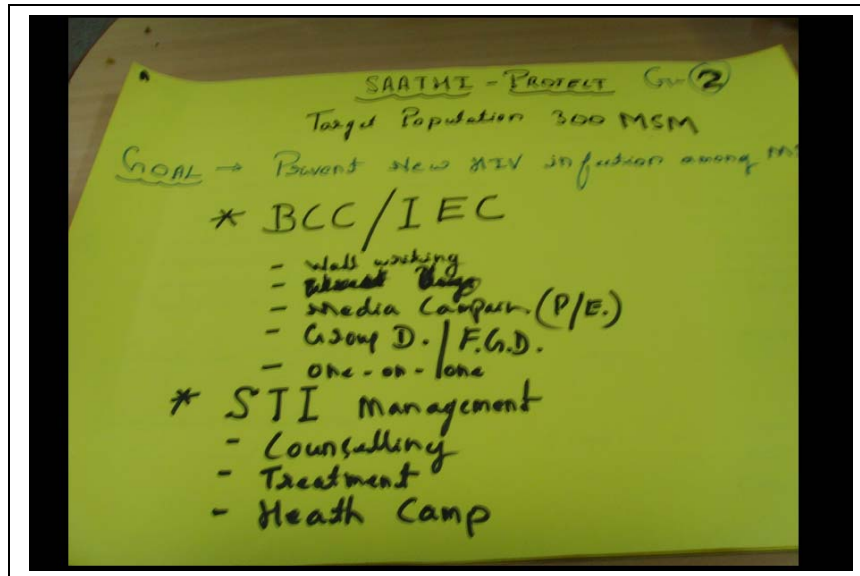 SAATHI - PROTECT Gr-2
Target Population 300 MSM
GOAL → Prevent New HIV infection among
* BCC/IEC
- Wall
-
- Media Campain. (P/E.)
- Group D. / F.G.D.
- one-on-one
* STI Management
- Counselling
- Treatment
- Heath Camp